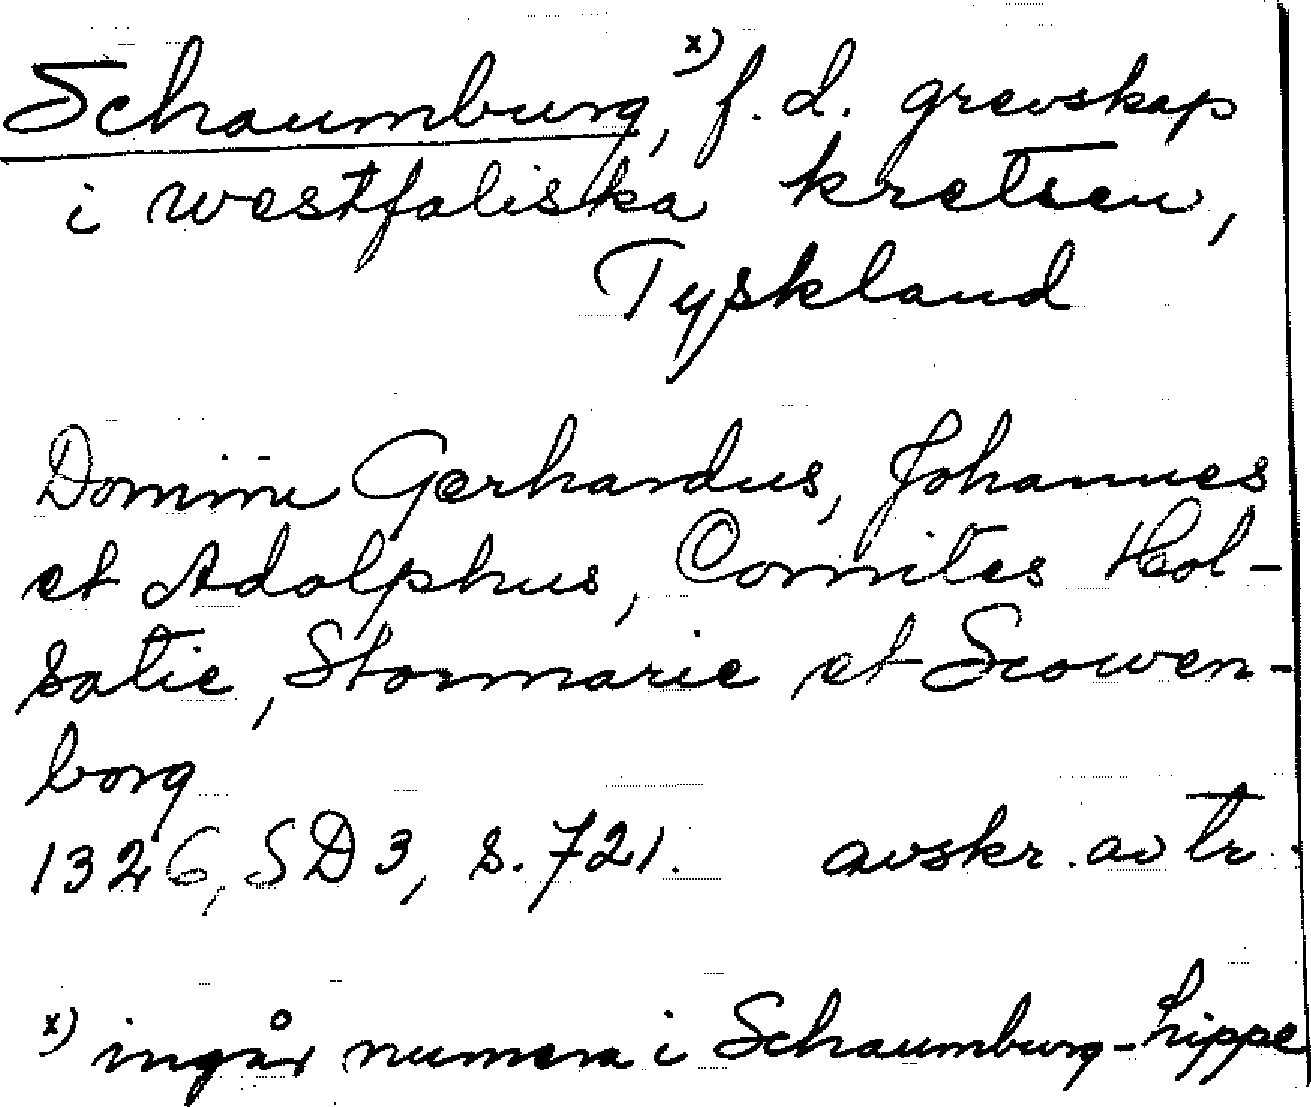 Schaumburg, x) f. d. grevskap
i westfaliska kretsen,
Tyskland
Domini Gerhardus, Johannes
et Adolphus, Comites Hol-
satie, Stormarie et Scowen-
borg
1326, SD 3, s. 721. avskr. av tr.
x) ingår numera i Schaumburg-Lippe